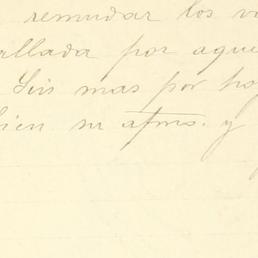 remudar los
allada por aque
Sin mas por ho
bien su afmo. y